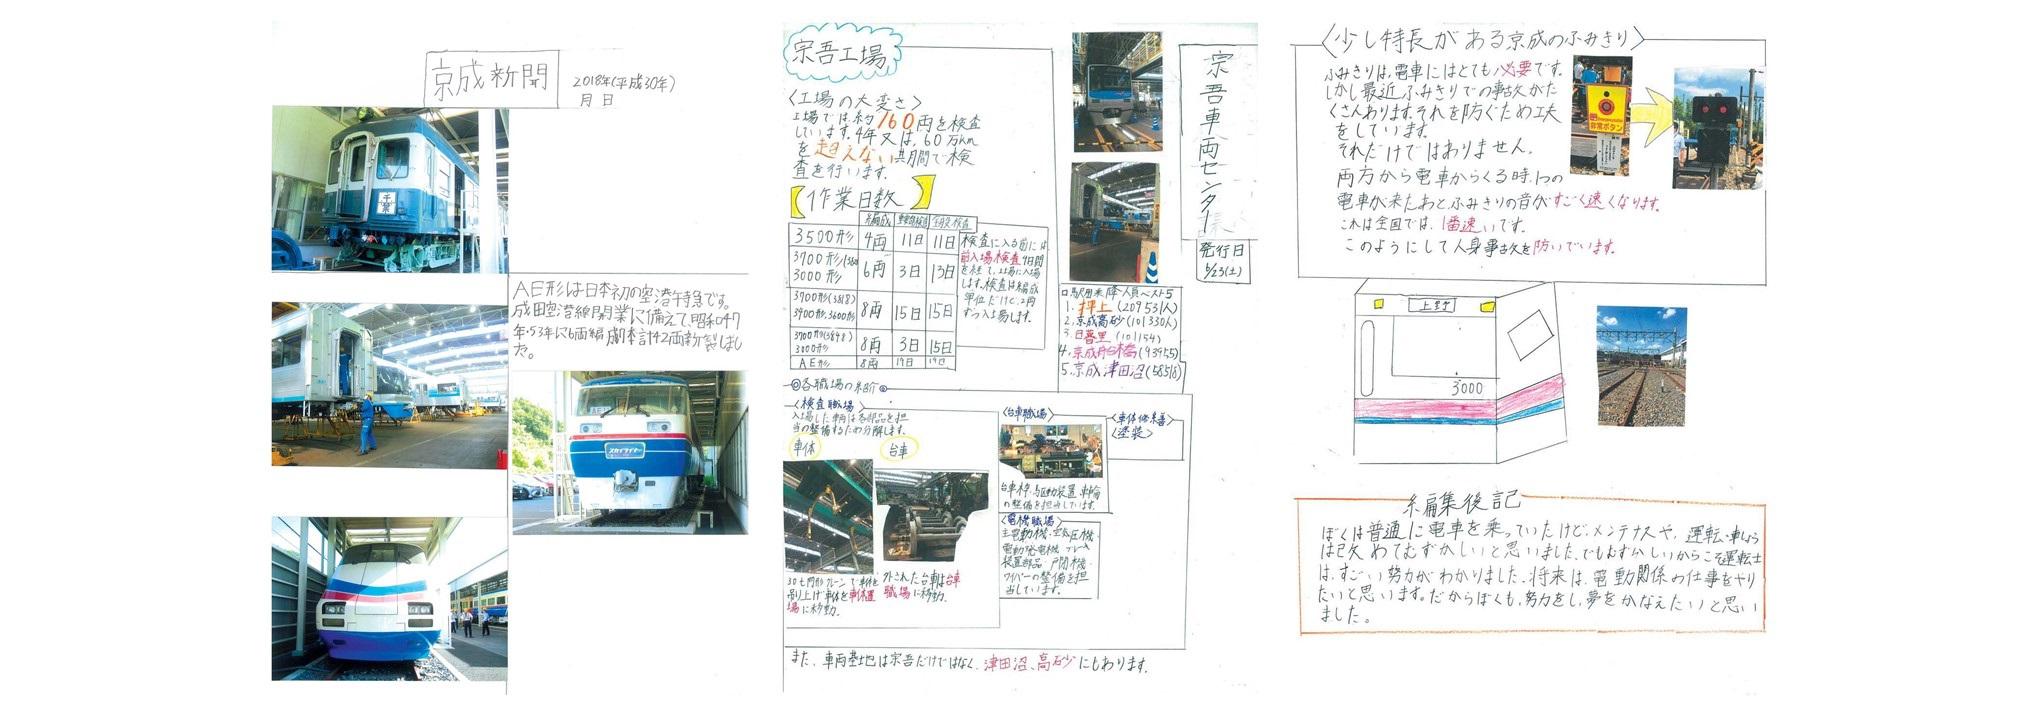 京成新聞
2018年(平成30年)
月 日
千葉
AE形は日本初の空港特急です。
成田空港線開業に備えて、昭和47
年・53年に6両編
計42両新製しまし
た。
AE
スカイライナー
宗吾工場
〈工場の大変さ〉
工場では、約760両を検査
しています。4年又は、60万km
を超えない 期間で検
査を行います。
作業日数
3500形 4両 11日 11日
3700形
3000形 6両 3日 13日
3700形(3818)
3400形、3600形 8両 15日 15日
3000形 8両 3日 15日
AE形 8両 19日 19日
検査に入る前には、
前入場検査
を経て、工場に入場
します。検査は編成
単位だけど、2両
ずつ入場します。
宗吾車両センター
発行日
駅別乗降人員ベスト5
1. 押上 (209531人)
2. 京成高砂 (101330人)
3. 日暮里 (101154)
4. 京成船橋 (93955)
5. 京成津田沼 (58518)
◎各職場の紹介◎
〈検査職場〉
入場した車両は各部品を担
当の整備するため分解します。
車体 台車
30t門形クレーンで車体を
吊り上げ車体を車体置
場に移動。
外された台車は台車
職場に移動。
〈台車職場〉
台車枠・駆動装置・車輪
の整備を担当しています。
〈電機職場〉
主電動機・空気圧機・
電動発電機・ブレーキ
装置部品・戸閉機・
ワイパーの整備を担
当しています。
〈車体修繕〉
〈塗装〉
また、車両基地は宗吾だけではなく、津田沼、高砂にもあります。
〈少し特長がある京成のふみきり〉
ふみきりは、電車にはとても必要です。
しかし最近ふみきりでの事故がた
くさんあります。それを防ぐため工夫
をしています。
それだけではありません。
両方から電車からくる時、1つの
電車が来たあと、ふみきりの音がすごく速くなります。
これは全国では、1番速いです。
このようにして人身事故を防いでいます。
非常ボタン
上野
3000
編集後記
ぼくは普通に電車を乗っていたけど、メンテナスや、運転・車しょう
は改めてむずかしいと思いました。でもむずかしいからこそ運転士
は、すごい努力がわかりました。将来は、電動関係の仕事をやり
たいと思います。だからぼくも、努力をし、夢をかなえたいと思い
ました。